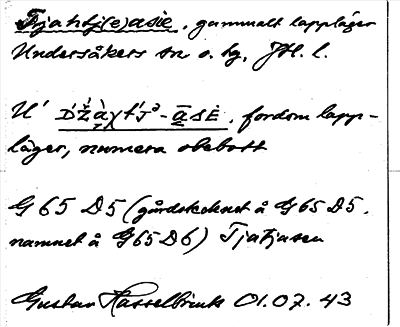 Tjahtj(e)asie, gammalt lappläger
Undersåkers sn o. tg, Jtl. l.
fordom lapp-
läger, numera obebott
G65 D5 (gårdstecknet å G65 D5,
namnet å G65 D6) Tjatjasen
Gustav Hasselbrink 01.07.43